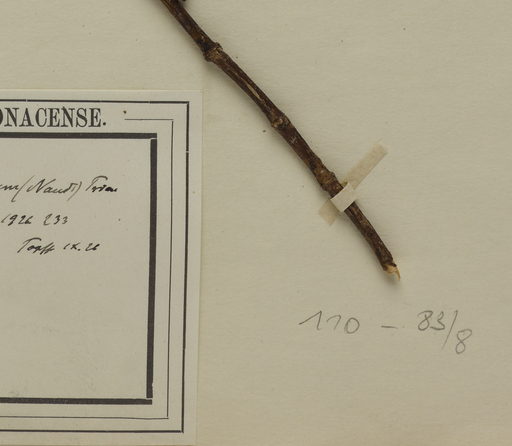 ONACENSE.
um (Naud.) Triana
1926 233
Topff IX.26
110 — 83/8